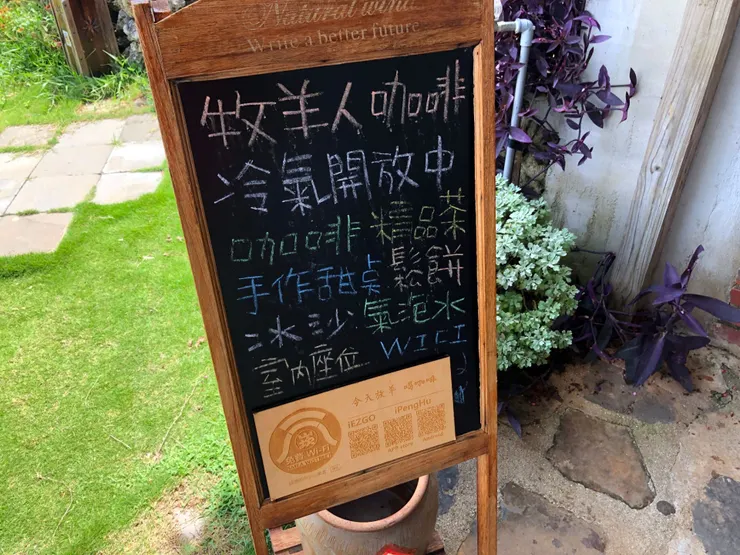 Natural wind
Write a better future
牧羊人咖啡
冷氣開放中
咖啡 精品茶
手作甜桌 鬆餅
冰沙 氣泡水
室內座位 WIFI
今天牧羊 喝咖啡
iEZGO iPengHu
免費 Wi-Fi